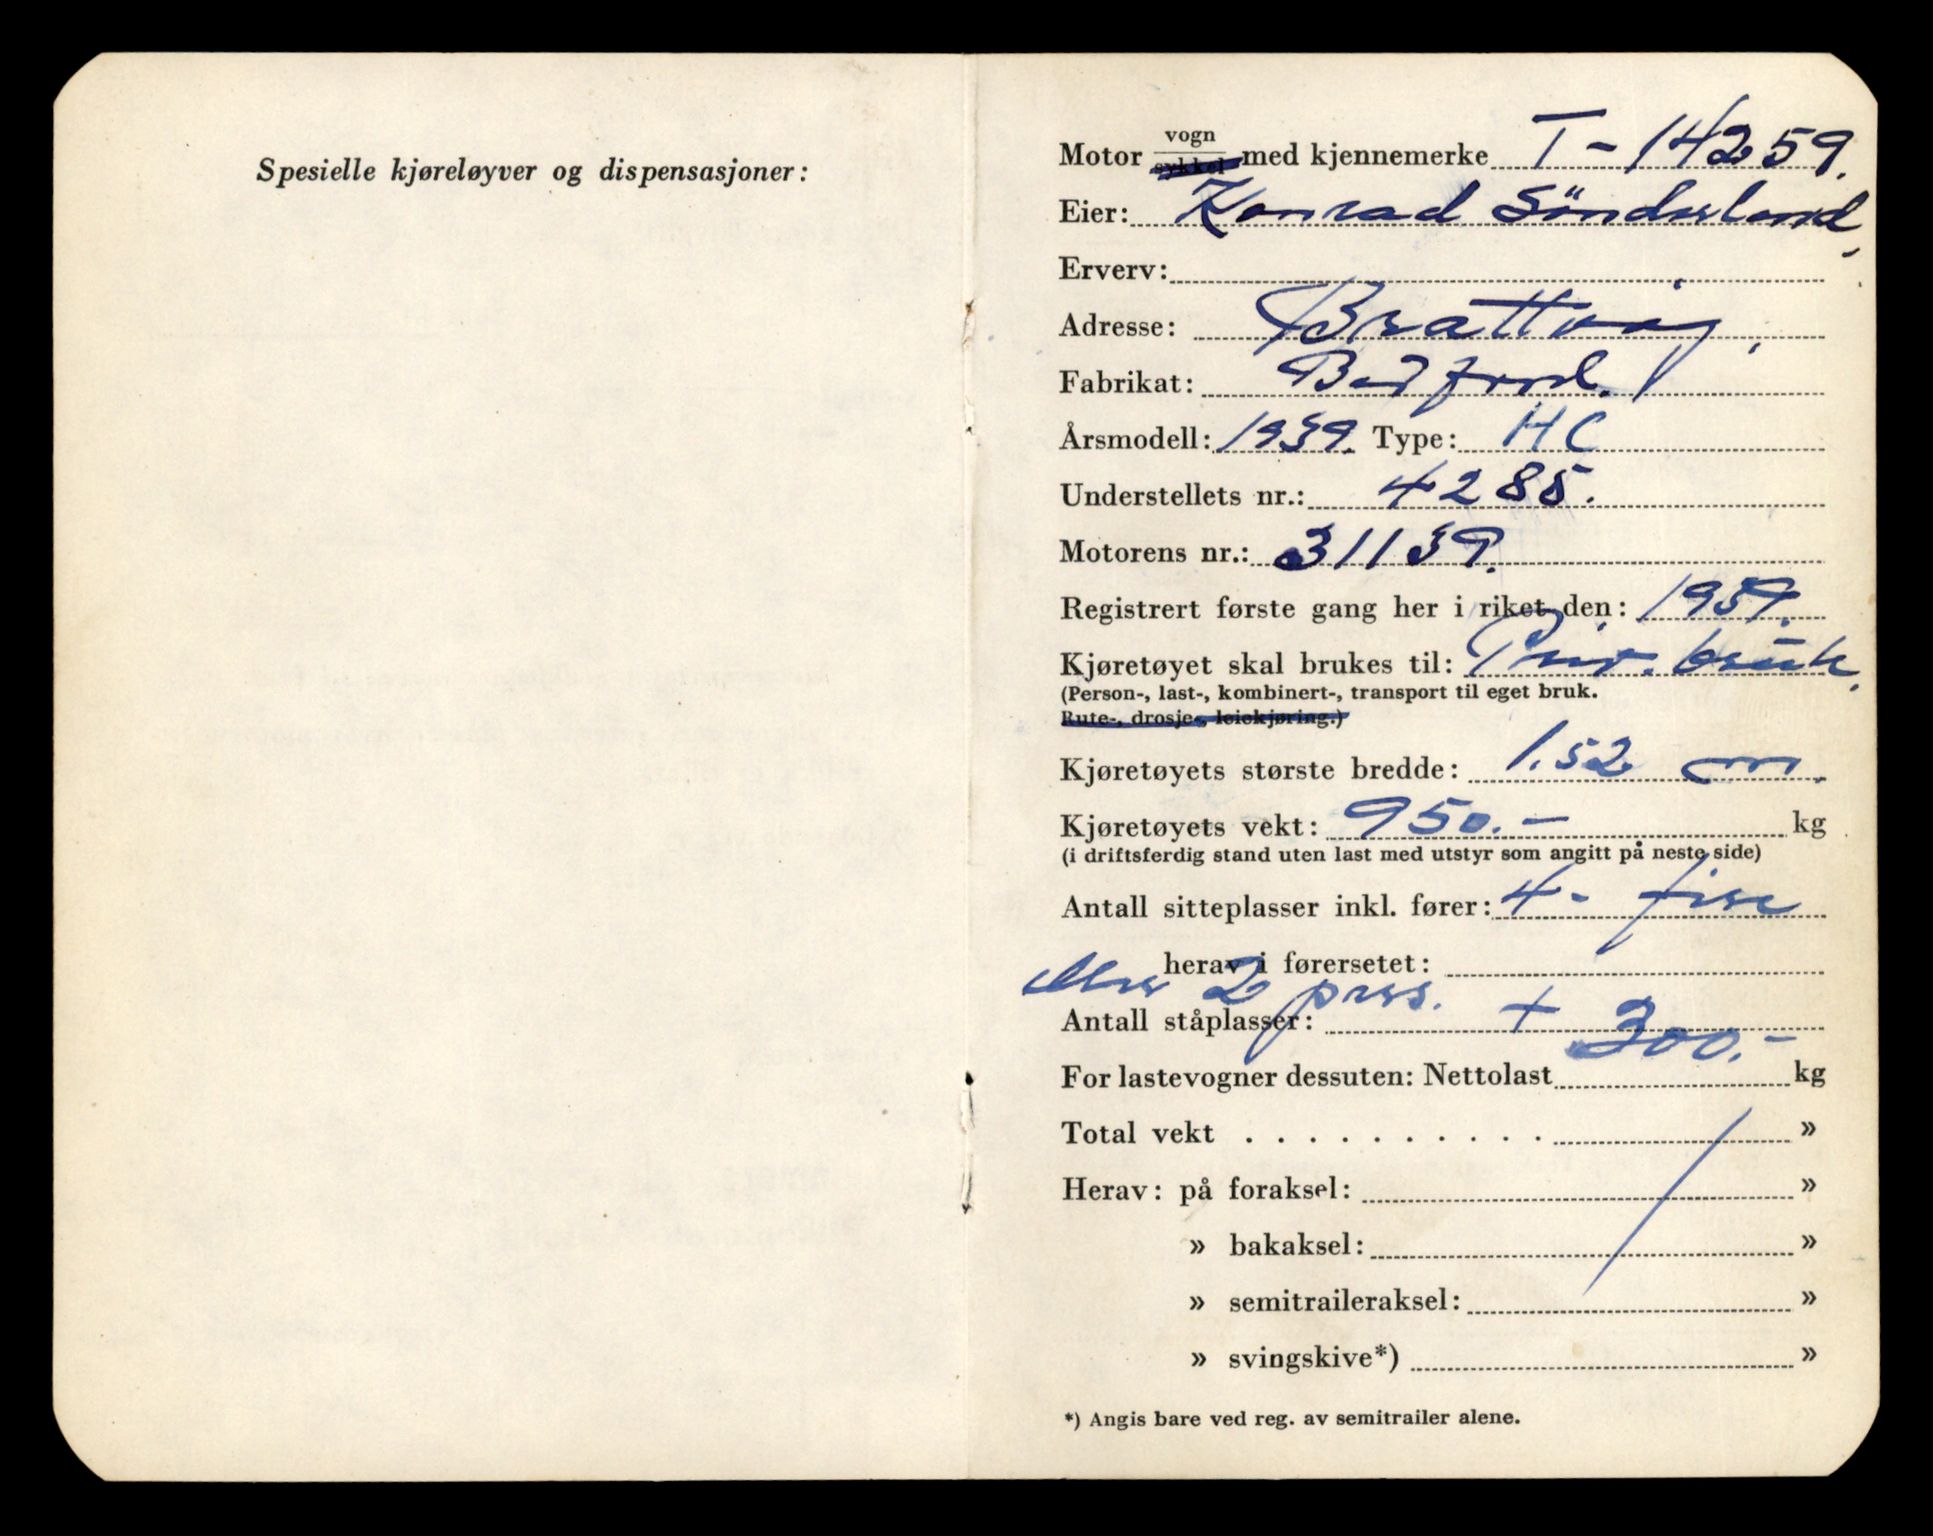 Spesielle kjøreløyver og dispensasjoner:
Motor vogn sykkel med kjennemerke T-14259.
Eier: Konrad Sönderland,
Erverv:
Adresse: Brattvåg,
Fabrikat: Bedford.
Årsmodell: 1939. Type: HC
Understellets nr.: 4285.
Motorens nr.: 31139.
Registrert første gang her i riket den: 1959.
Kjøretøyet skal brukes til: Priv. bruk.
(Person-, last-, kombinert-, transport til eget bruk.
Rute-, drosje-, leiekjøring.)
Kjøretøyets største bredde: 1.52 m.
Kjøretøyets vekt: 950.- kg
(i driftsferdig stand uten last med utstyr som angitt på neste side)
Antall sitteplasser inkl. fører: 4- fire
herav i førersetet:
eller 2 pers. + 300.-
Antall ståplasser:
For lastevogner dessuten: Nettolast kg
Total vekt . . . . . . . . . . »
Herav: på foraksel: »
» bakaksel: »
» semitraileraksel: »
» svingskive*) »
*) Angis bare ved reg. av semitrailer alene.